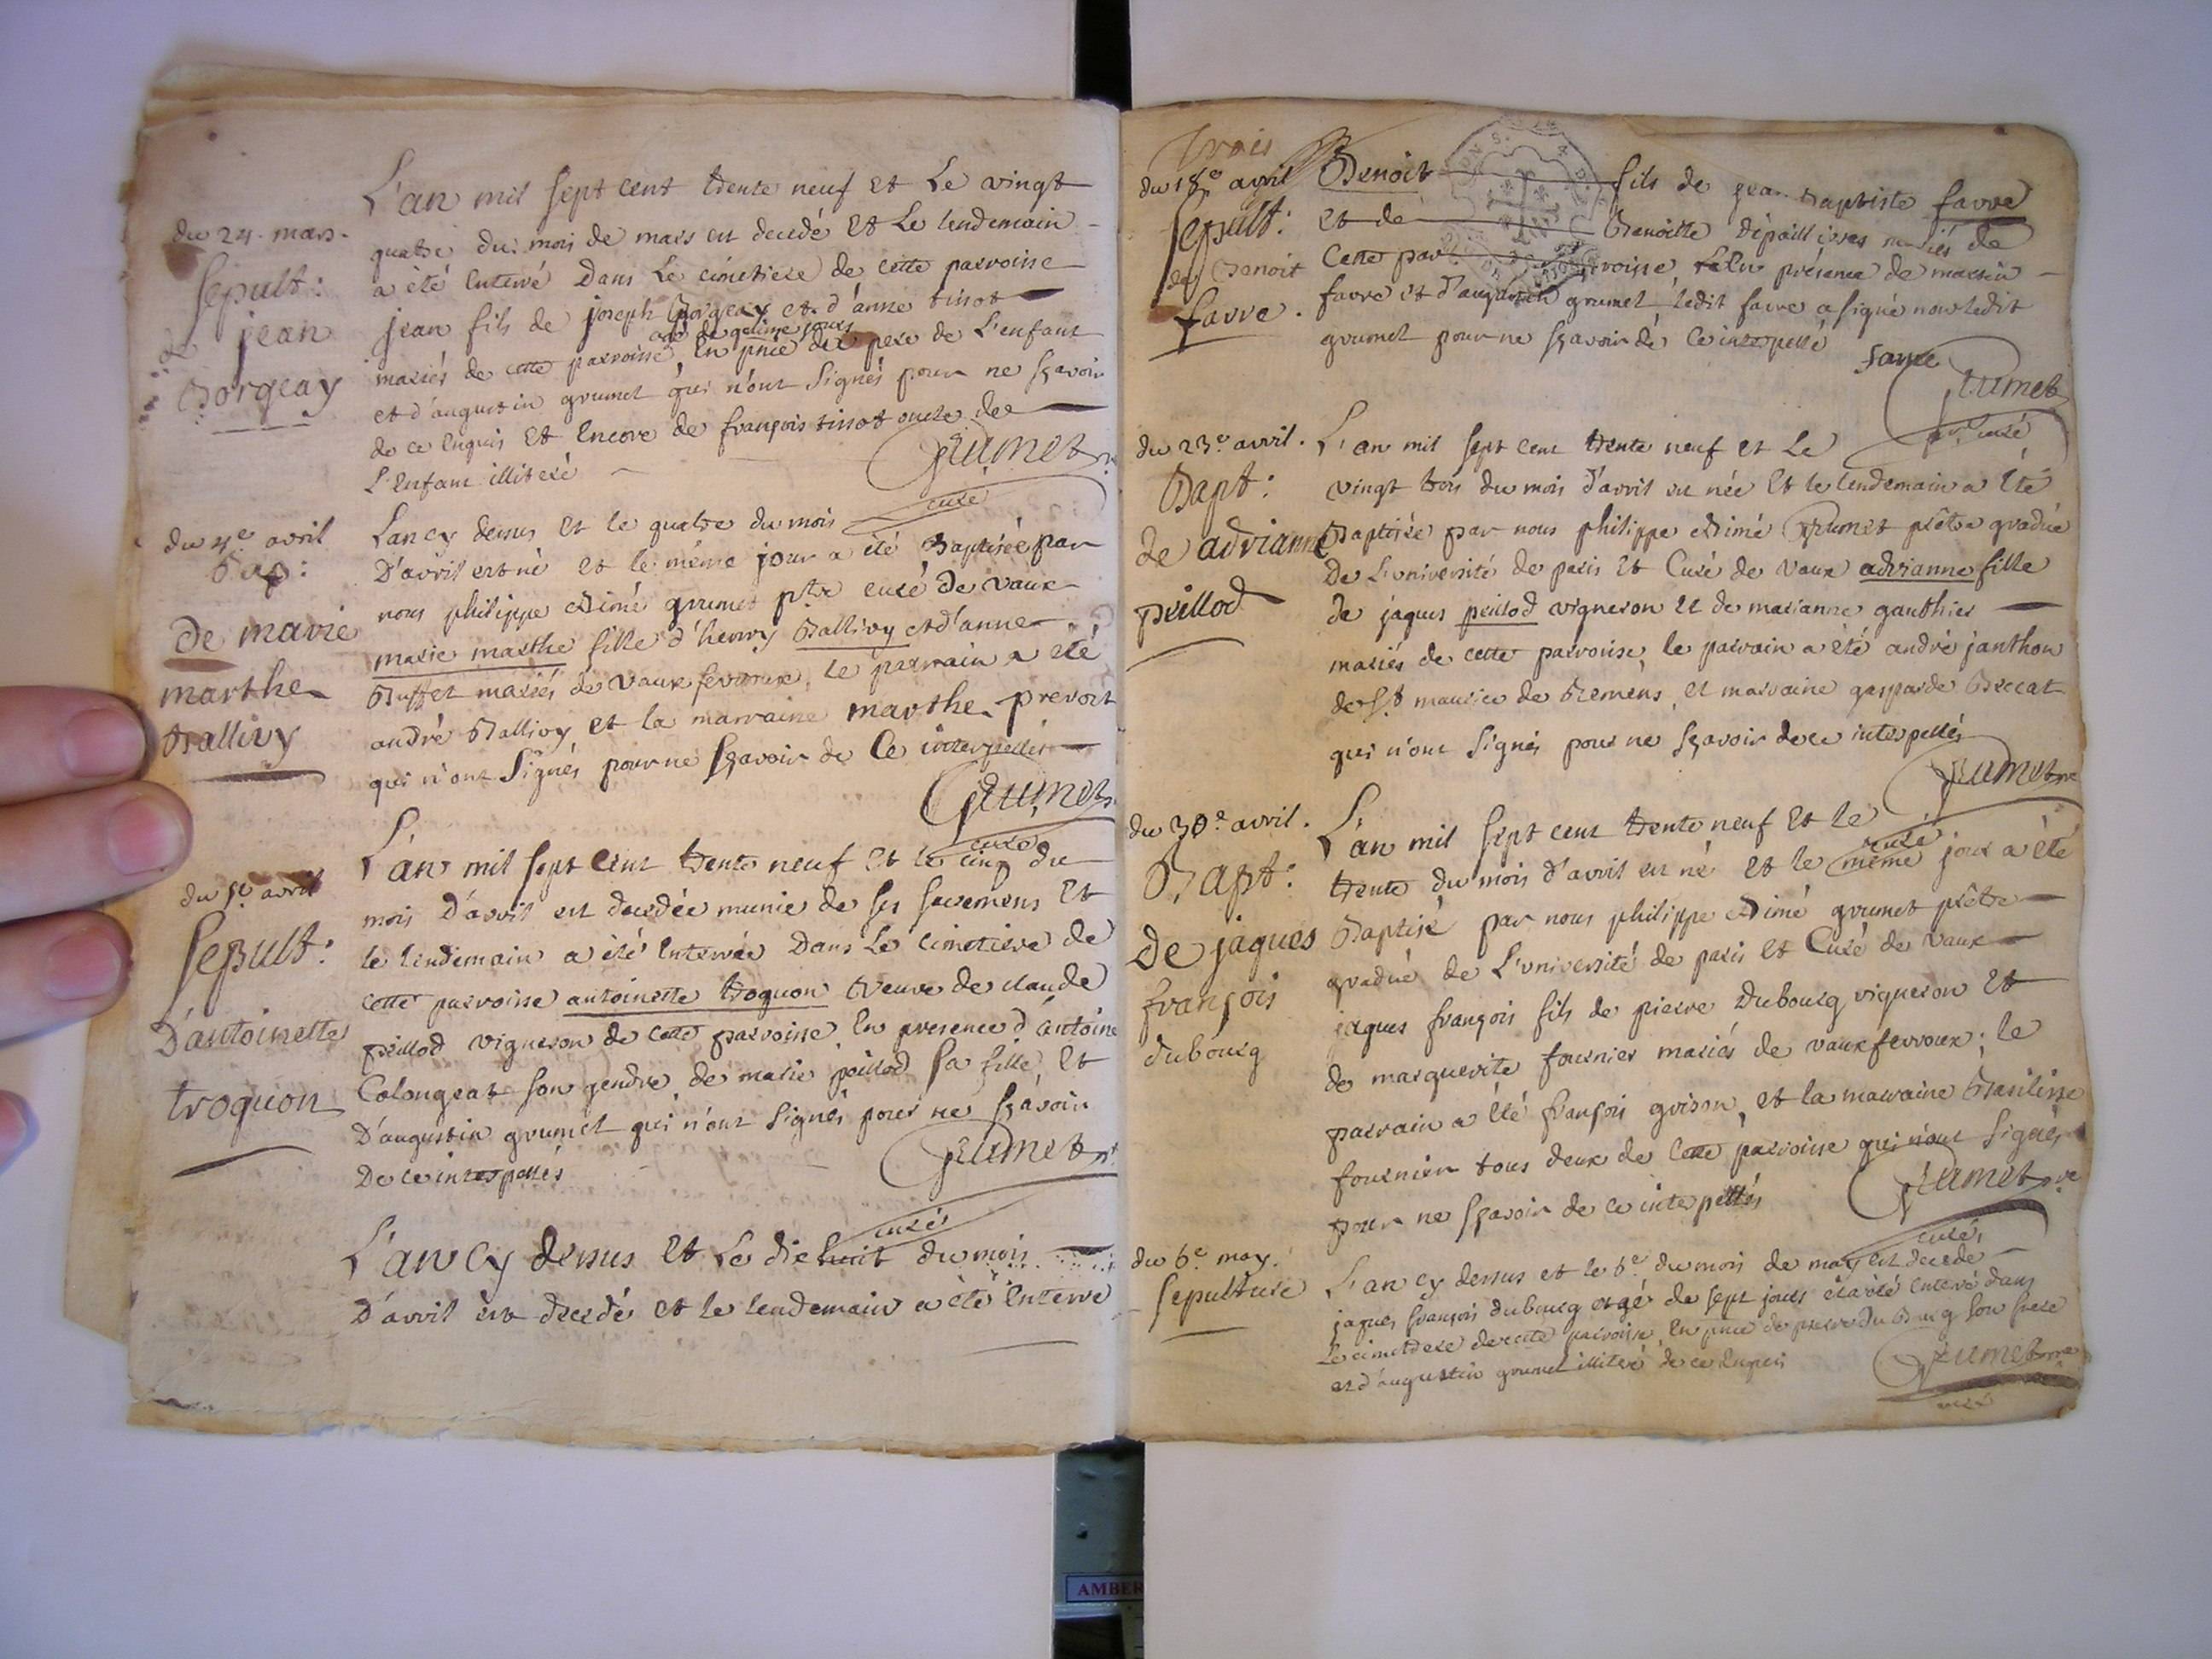 du 24. mars.
Sepult:
de jean
Borgeay
L'an mil sept cent trente neuf et Le vingt
quatre du mois de mars est decedé et Le lendemain
a été enterré Dans Le cimetiere de cette parroisse
jean fils de joseph Borgeay et d'anne tissot
agé de jours
mariés de cette parroisse, en pnce du pere de L'enfant
et d'augustin grumet qui n'ont signés pour ne sçavoir
de ce enquis et encore de françois tissot oncle de
L'enfant illiteré
Grumet
curé
du 4e avril
Bap:
De marie
marthe
Ballivy
L'an cy dessus et le quatre du mois
D'avril est né et le même jour a été Baptisée par
nous philippe Aimé grumet ptre curé de vaux
marie marthe fille d'henry Ballivy et d'anne
Buffet mariés de vaux fevroux, le parrain a été
andré Ballivy et la marraine marthe prevost
qui n'ont signés pour ne sçavoir de ce interpellés
Grumet
curé
du 5e avril
Sepult:
D'antoinette
troquon
L'an mil sept cent trente neuf et le cinq du
mois D'avril est decedée munie de ses sacremens et
le lendemain a été enterrée Dans Le cimetiere de
cette parroisse antoinette troquon veuve de claude
peillod vigneron de cette parroisse, en presence d'antoine
Colongeat son gendre, de marie peillod sa fille, et
D'augustin grumet qui n'ont signés pour ne sçavoir
De ce interpellés
Grumet
curé
L'an cy dessus et Le dix huit du mois
D'avril est decedé et le lendemain a été enterré
trois
du 18e avril
Sepult:
de Benoit
favre.
Benoit fils de jean Baptiste favre
et de Benoitte Dépaillisses mariés de
Cette parroisse, en présence de
favre et d'augustin grumet, ledit favre a signé non ledit
grumet pour ne sçavoir de ce interpellé
favre
Grumet
curé
du 23e avril.
Bapt:
de adrianne
peillod
L'an mil sept cent trente neuf et Le
vingt trois du mois d'avril est née et le lendemain a été
Baptisée par nous philippe Aimé Grumet prêtre gradué
De L'université de paris et Curé de vaux adrianne fille
de jaques peillod vigneron et de marianne gauthier
mariés de cette parroisse, le parrain a été andré janthon
de st maurice de Remens, et marraine gasparde Beccat
qui n'ont signés pour ne sçavoir de ce interpellés
Grumet
curé
du 30e avril.
Bapt:
De jaques
françois
dubourg
L'an mil sept cent trente neuf et le
trente du mois d'avril est né et le même jour a été
Baptisé par nous philippe Aimé grumet prêtre
gradué de L'université de paris et Curé de vaux
jaques françois fils de pierre Dubourg vigneron et
de marguerite fournier mariés de vaux fevroux; le
parrain a été françois grison, et la marraine Basilisse
fournier tous deux de cette parroisse qui n'ont signés
pour ne sçavoir de ce interpellés
Grumet
curé
du 6e may.
sepulture
L'an cy dessus et le 6e du mois de may est decedé
jaques françois dubourg agé de sept jours et a été enterré dans
Le cimetiere de cette parroisse, en pnce de pierre Du Bourg son frere
et d'augustin grumet illiteré de ce enquis
Grumet
curé
AMBER